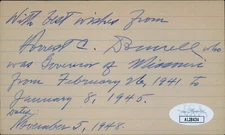 With best wishes from
Forrest C. Donnell who
was Governor of Missouri
from February 26, 1941 to
January 8, 1945.
Date,
November 5, 1948.
JSA
AL28424